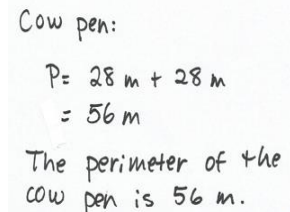 Cow pen:
P= 28 m + 28 m
= 56 m
The perimeter of the
cow pen is 56 m.